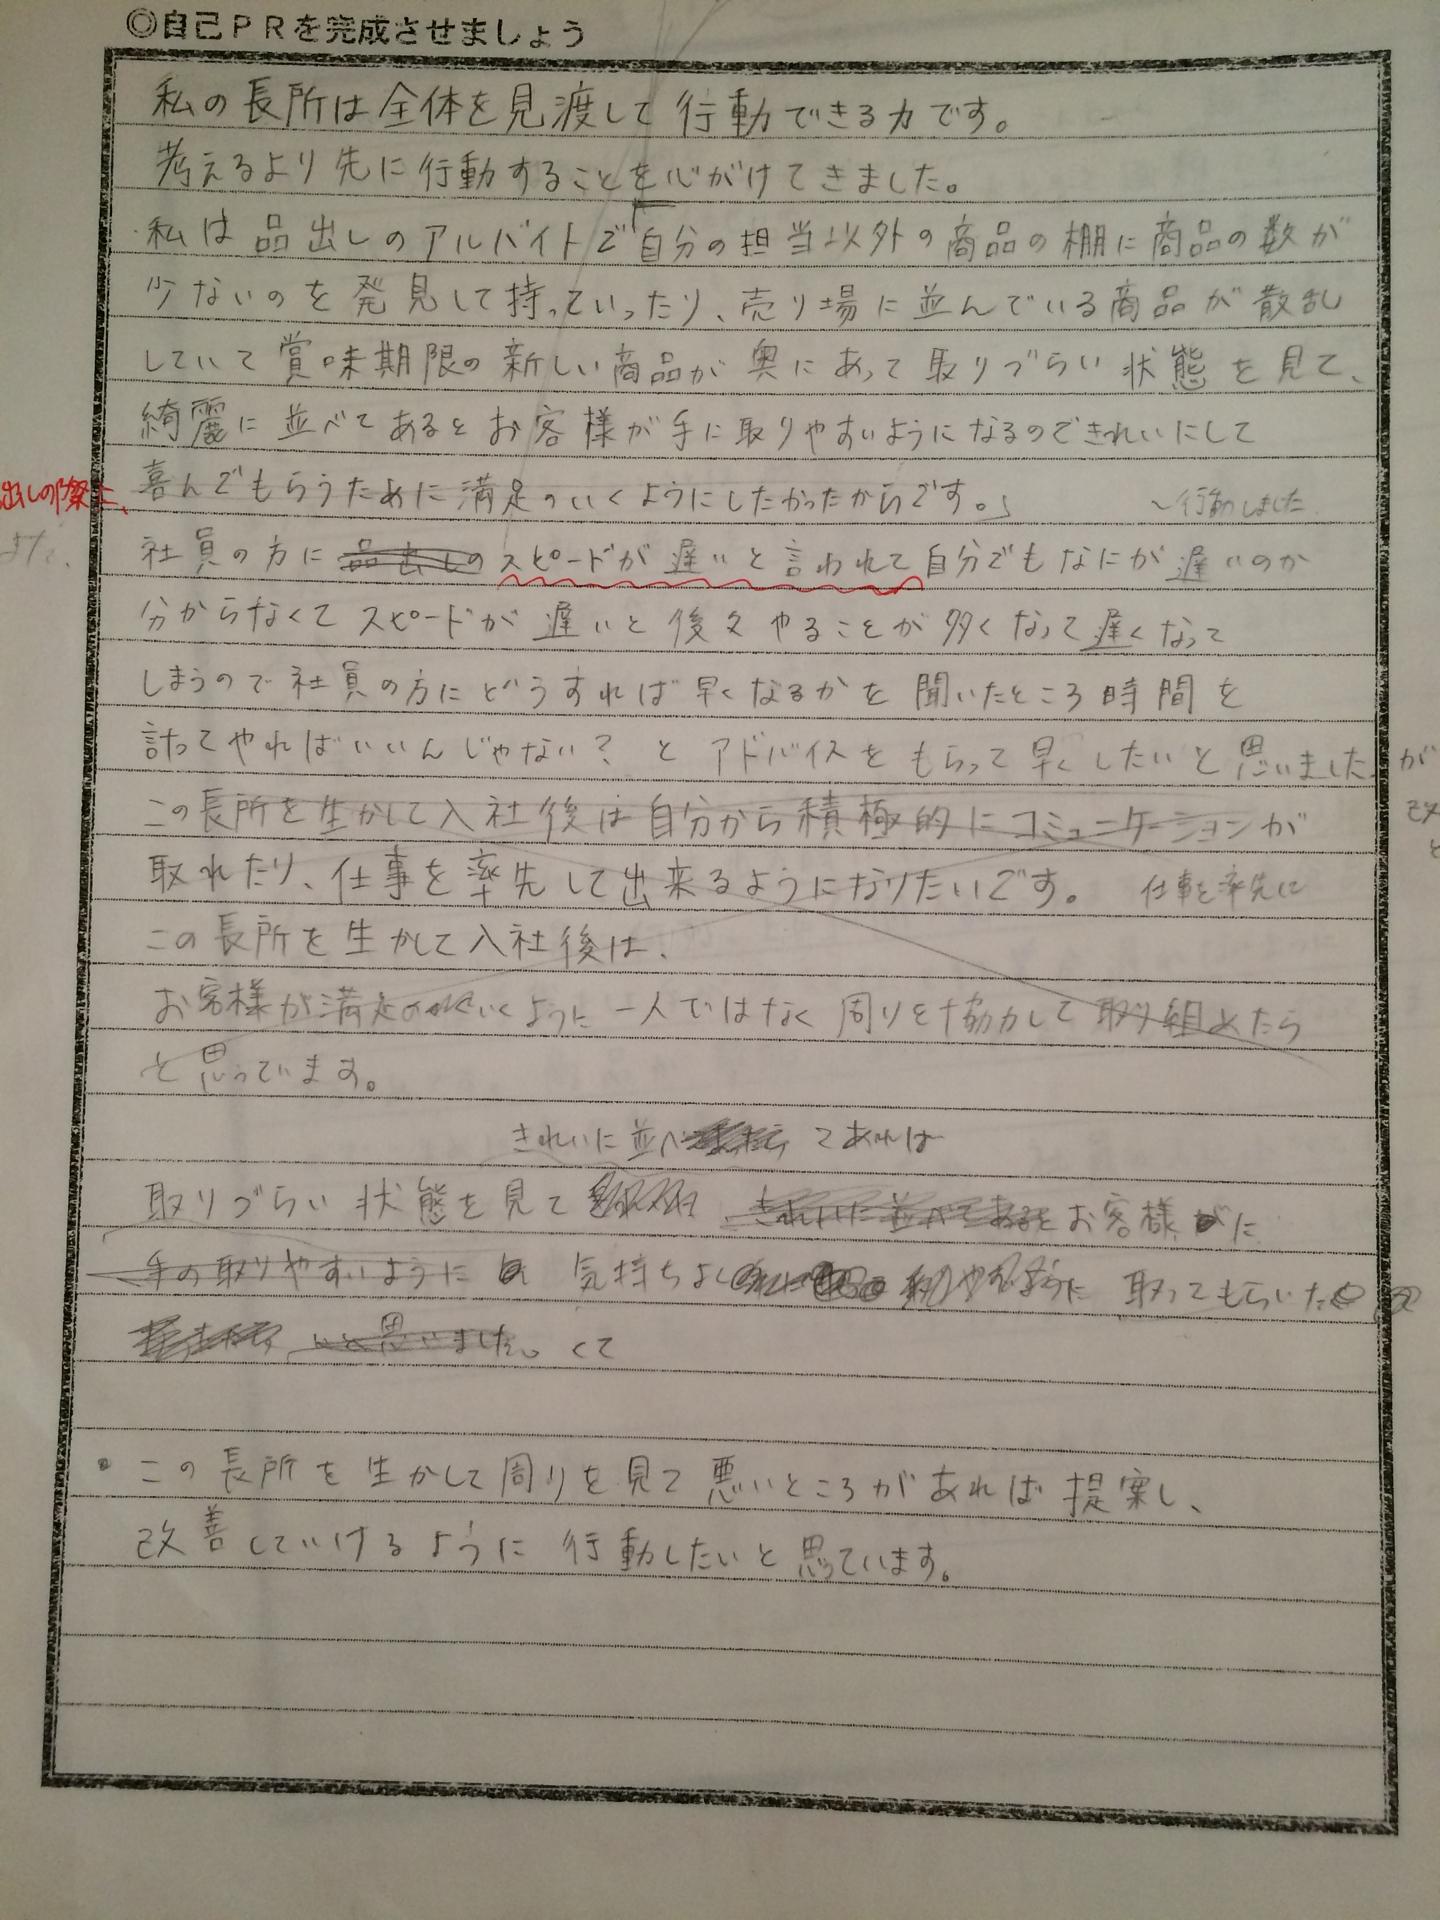 ◎自己PRを完成させましょう
私の長所は全体を見渡して行動できる力です。
考えるより先に行動することを心がけてきました。
私は品出しのアルバイトで「自分の担当以外の商品の棚に商品の数が
少ないのを発見して持っていったり、売り場に並んでいる商品が散乱
していて賞味期限の新しい商品が奥にあって取りづらい状態を見て、
綺麗に並べてあるとお客様が手に取りやすいようになるのできれいにして
喜んでもらうために満足のいくようにしたかったからです。」 〜行動しました
出しの際に、
また、
社員の方に品出しのスピードが遅いと言われて自分でもなにが遅いのか
分からなくてスピードが遅いと後々やることが多くなって遅くなって
しまうので社員の方にどうすれば早くなるかを聞いたところ時間を
計ってやればいいんじゃない?とアドバイスをもらって早くしたいと思いましたが
この長所を生かして入社後は自分から積極的にコミュニケーションが
取れたり、仕事を率先して出来るようになりたいです。 仕事を率先に
この長所を生かして入社後は、
お客様が満足のいくように一人ではなく周りを協力して取り組めたら
と思っています。
きれいに並べ てあれば
取りづらい状態を見て きれいに並べてあるとお客様に
手の取りやすいように 気持ちよく 取ってもらいた
いと思いました。くて
・この長所を生かして周りを見て悪いところがあれば提案し、
改善していけるように行動したいと思っています。